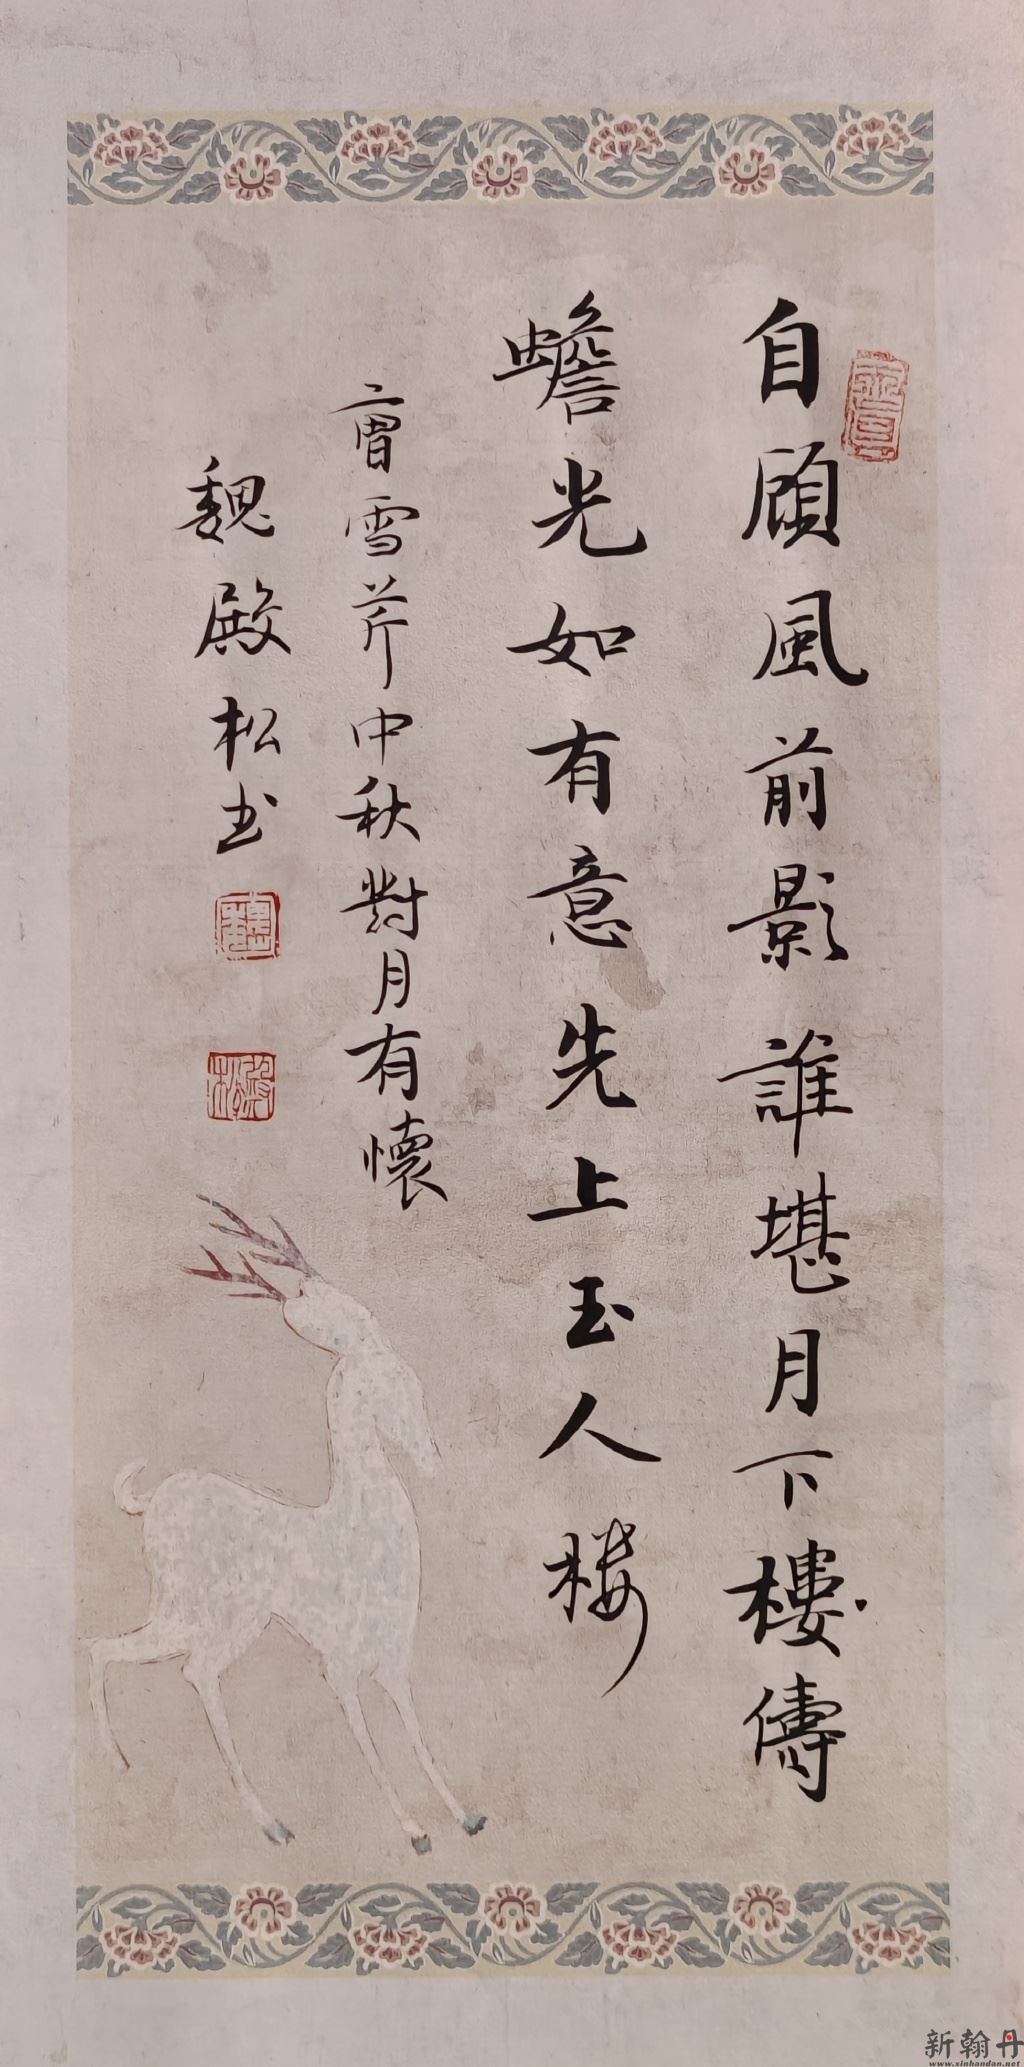 自顧風前影誰堪月下樓儔
蟾光如有意先上玉人楼
曹雪芹中秋對月有懷
魏殿松书
新翰丹
www.xinhandan.net